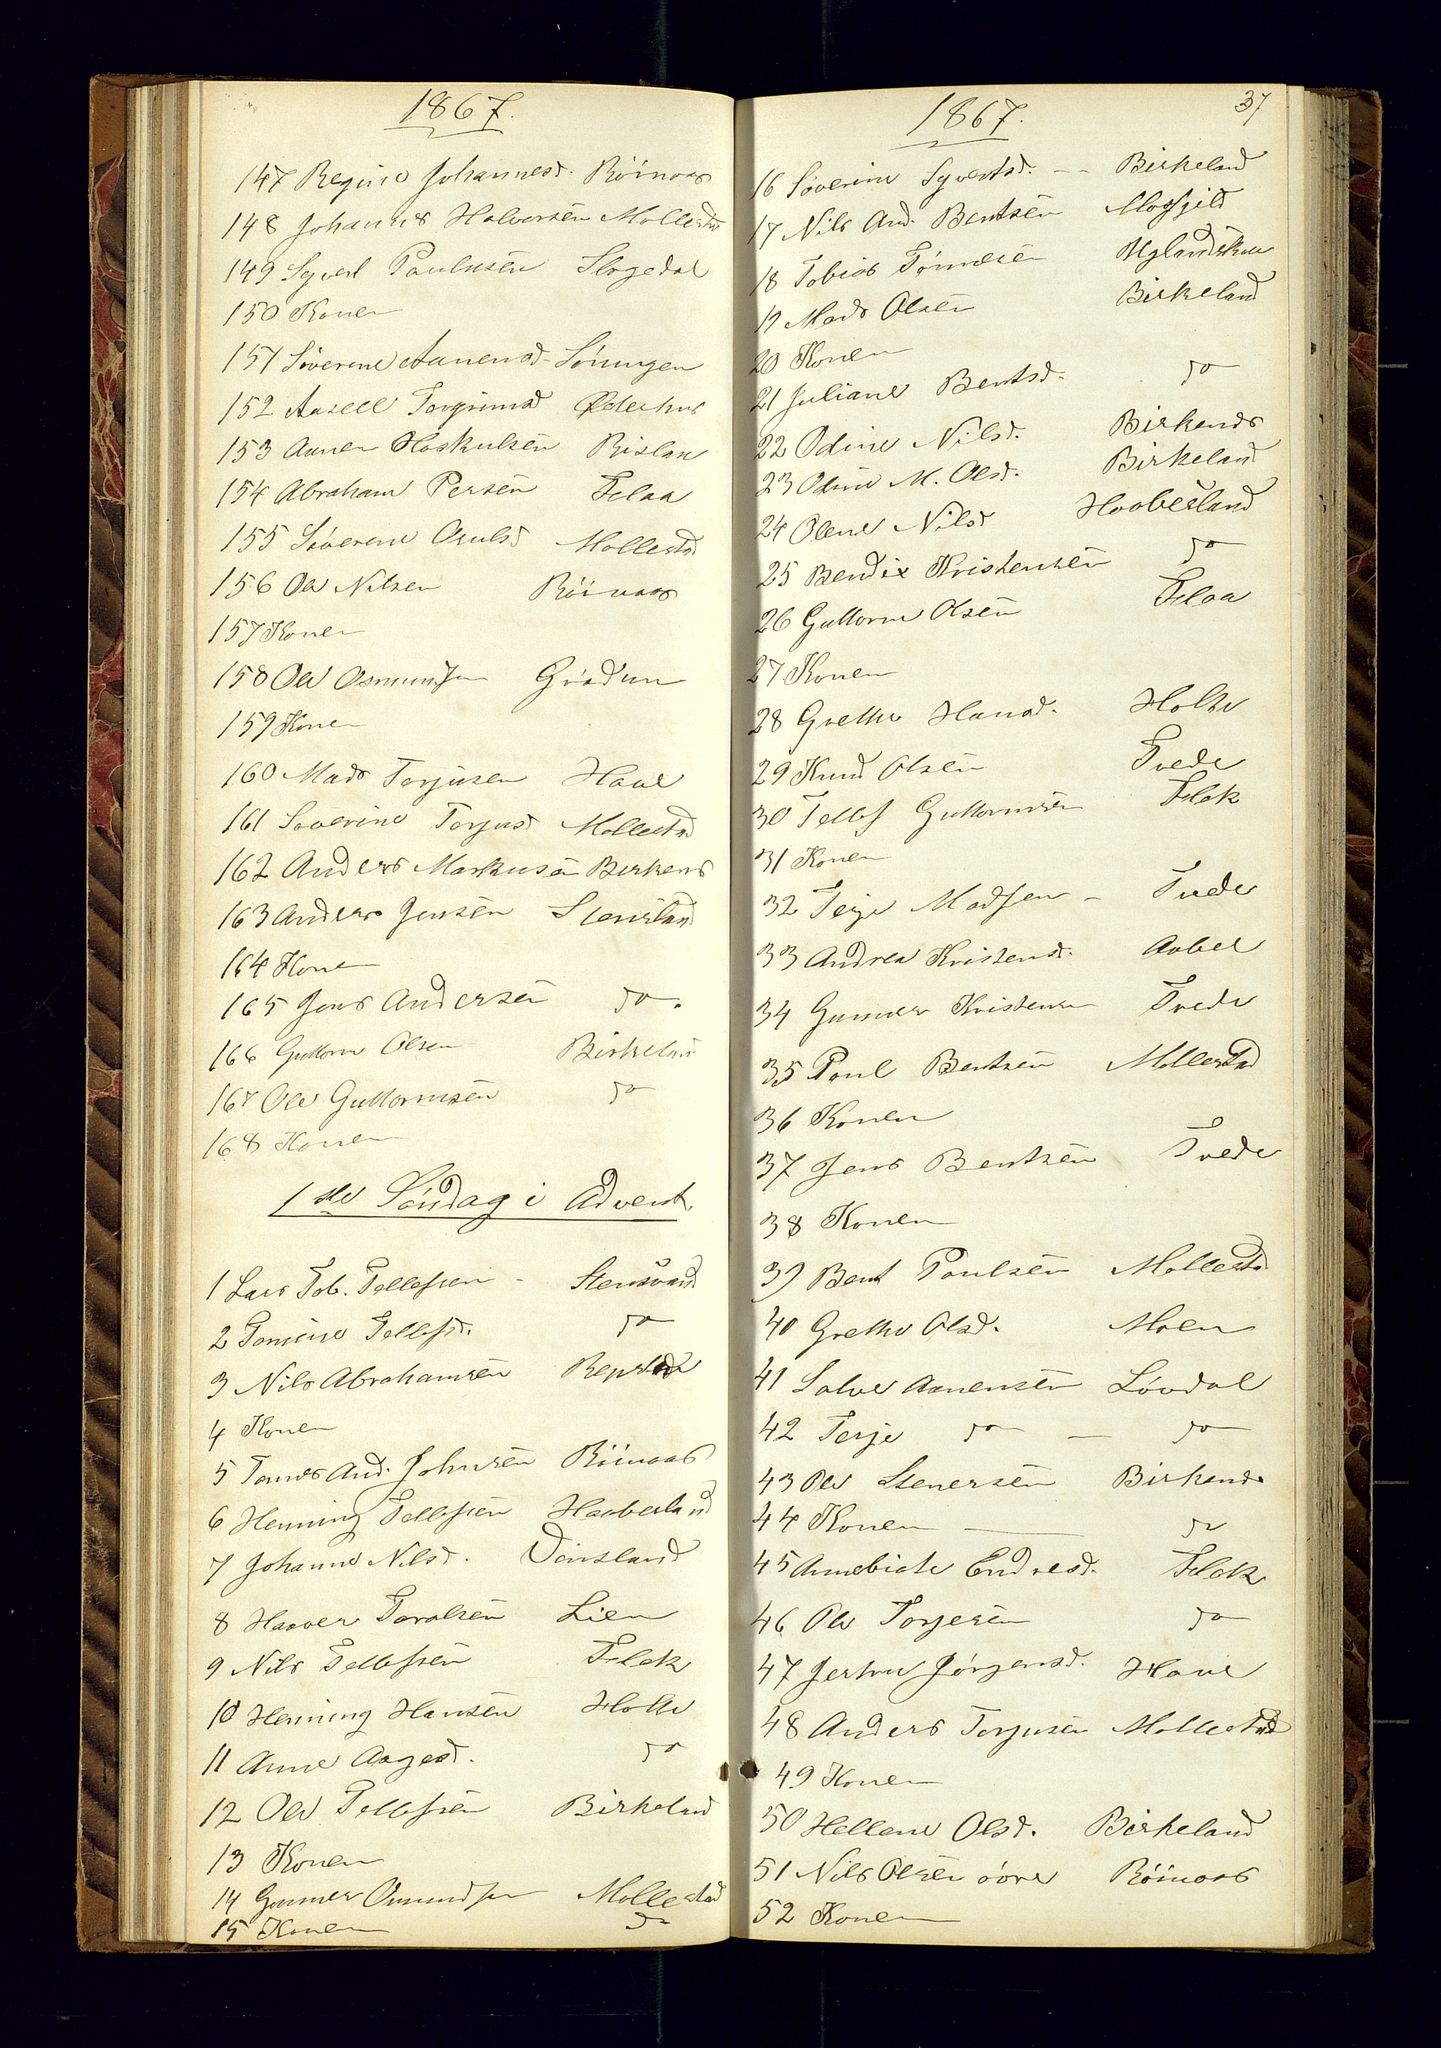 1867.
147 Regine Johannesd. Röinaas
148 Johannes Halvorsen Mollestad
149 Syvert Paulusen Slogedal
150 Konen
151 Söverine Aanensd. Löningen
152 Aasell Torgrimsd Øderhus
153 Aanen Hoskulsen Rislaa
154 Abraham Persen Felaa
155 Söverine Osulsd Mollestad
156 Ole Nilsen Röinaas
157 Konen
158 Ole Osmundsen Grödum
159 Konen
160 Mads Terjusen Have
161 Söverine Torjusd Mollestad
162 Anders Markusen Birkenes
163 Anders Jensen Stensland
164 Konen
165 Jens Andersen do.
166 Guttorm Olsen Birkeland
167 Ole Guttormsen do
168 Konen
1ste Søndag i Advent
1 Lars Tob. Tellefsen - Stensvand
2 Tomine Tellefsd. do
3 Nils Abrahamsen Repstad
4 Konen
5 Tomas And. Johnsen Röinaas
6 Henning Tellefsen Haaberland
7 Johanne Nilsd. Vinsland
8 Haaver Tarolsen Lien
9 Nils Tellefsen Flak
10 Henning Hansen Holte
11 Anne Aagesd. do
12 Ole Tellefsen Birkeland
13 Konen
14 Gunner Omundsen Mollestad
15 Konen do
1867. 37
16 Söverine Syvertsd. - Birkeland
17 Nils And. Bentsen Mosfjeld
18 Tobias Tönnesen Uglandskaa
19 Mads Olsen Birkeland
20 Konen
21 Juliane Bentsd. do
22 Odine Nilsd. Birkenes
23 Odine M. Olsd. Birkeland
24 Olene Nilsd Haaberland
25 Bendix Kristensen do
26 Guttorm Olsen Felaa
27 Konen
28 Grethe Hansd. Holte
29 Knud Olsen Tvede
30 Tellef Guttormsen Flak
31 Konen
32 Terje Madsen - Tvede
33 Andrea Kristensd. Aabel
34 Gunner Kristensen Tvede
35 Poul Bentsen Mollestad
36 Konen
37 Jens Bentsen Tvede
38 Konen
39 Bent Poulsen Mollestad
40 Grethe Olsd. Moen
41 Salve Aanensen Lövdal
42 Terje do - do
43 Ole Stenersen Birkenes
44 Konen - do
45 Annebiate Endresd. Flak
46 Ole Torjesen do
47 Jertru Jörgensd. Have
48 Anders Terjusen Mollestad
49 Konen
50 Hellene Olsd. Birkeland
51 Nils Olsen övre Röinaas
52 Konen